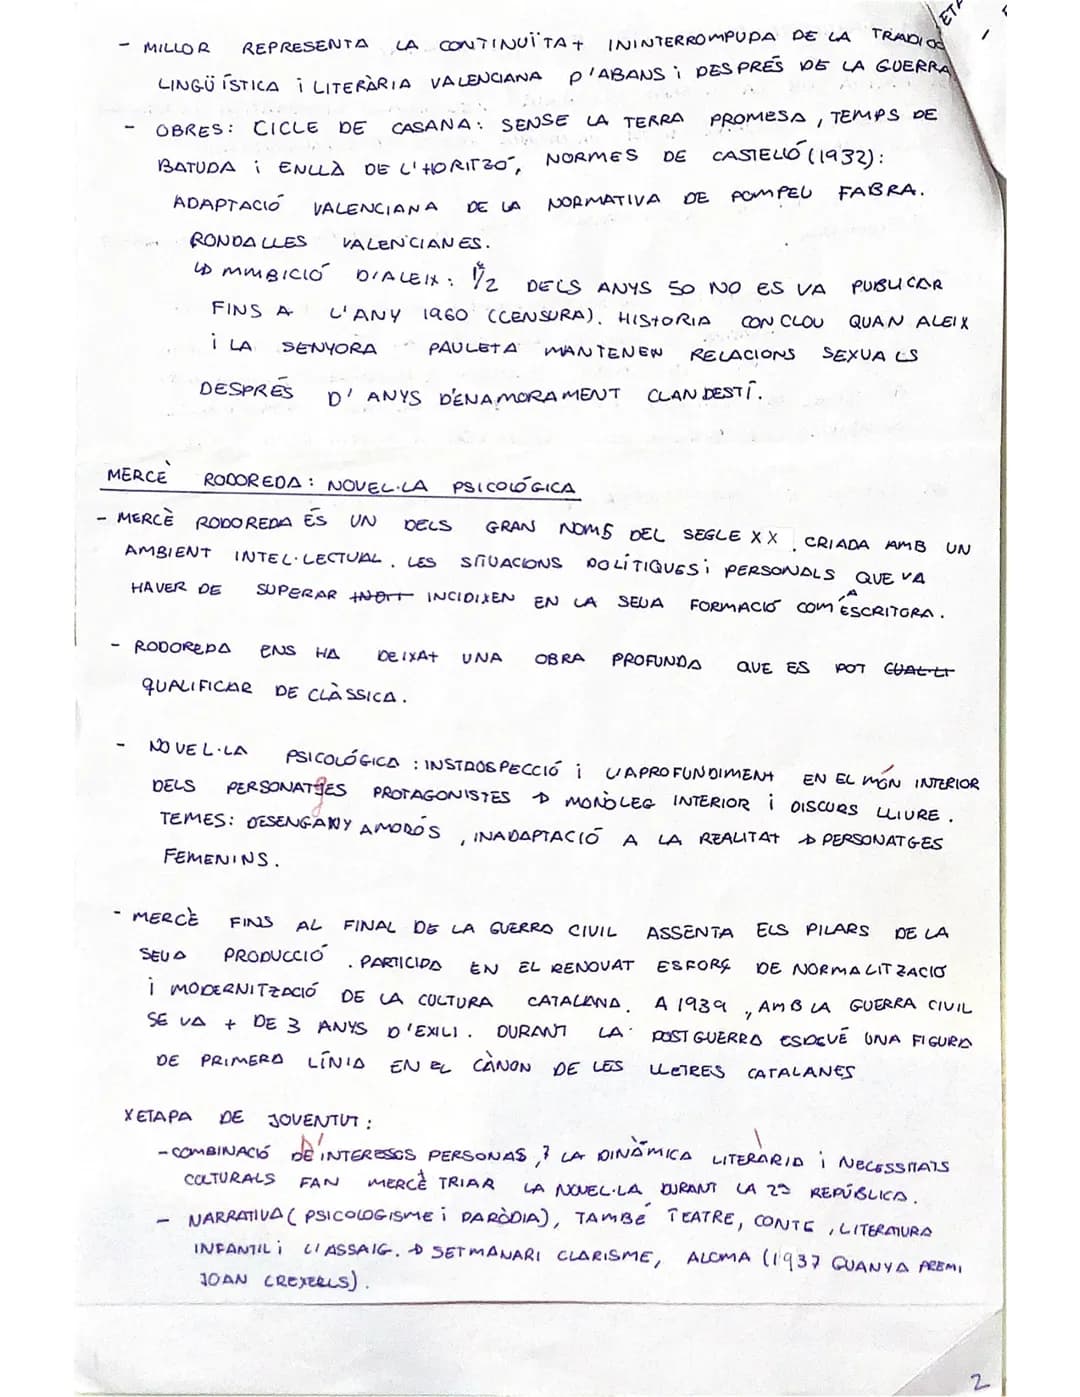 ETA
- MILLOR REPRESENTA LA CONTINUÏTAT ININTERROMPUDA DE LA TRADICI
LINGÜÍSTICA i LITERÀRIA VALENCIANA D'ABANS i DESPRÉS DE LA GUERRA
- OBRES: CICLE DE CASANA: SENSE LA TERRA PROMESA, TEMPS DE
BATUDA i ENLLÀ DE L'HORITZÓ, NORMES DE CASTELLÓ (1932):
ADAPTACIÓ VALENCIANA DE LA NORMATIVA DE POMPEU FABRA.
RONDALLES VALENCIANES.
↳ MMBICIÓ D'ALEIX: 1/2 DELS ANYS 50 NO ES VA PUBLICAR
FINS A L'ANY 1960 (CENSURA). HISTORIA CONCLOU QUAN ALEIX
i LA SENYORA PAULETA MANTENEN RELACIONS SEXUALS
DESPRÉS D'ANYS D'ENAMORAMENT CLANDESTÍ.
MERCÈ RODOREDA: NOVEL·LA PSICOLÓGICA
- MERCÈ RODOREDA ÉS UN DELS GRAN NOMS DEL SEGLE XX. CRIADA AMB UN
AMBIENT INTEL·LECTUAL. LES SITUACIONS POLÍTIQUES i PERSONALS QUE VA
HAVER DE SUPERAR INCIDIXEN EN LA SEUA FORMACIÓ COM A ESCRITORA.
- RODOREDA ENS HA DEIXAT UNA OBRA PROFUNDA QUE ES POT
QUALIFICAR DE CLÀSSICA.
- NOVEL·LA PSICOLÓGICA: INSTROSPECCIÓ i L'APROFUNDIMENT EN EL MÓN INTERIOR
DELS PERSONATGES PROTAGONISTES → MONÒLEG INTERIOR i DISCURS LLIURE.
TEMES: DESENGANY AMORÓS, INADAPTACIÓ A LA REALITAT → PERSONATGES
FEMENINS.
- MERCÈ FINS AL FINAL DE LA GUERRA CIVIL ASSENTA ELS PILARS DE LA
SEUA PRODUCCIÓ. PARTICIPA EN EL RENOVAT ESFORÇ DE NORMALITZACIÓ
i MODERNITZACIÓ DE LA CULTURA CATALANA. A 1939, AMB LA GUERRA CIVIL
SE VA + DE 3 ANYS D'EXILI. DURANT LA POSTGUERRA ESDEVÉ UNA FIGURA
DE PRIMERA LÍNIA EN EL CÀNON DE LES LLETRES CATALANES
X ETAPA DE JOVENTUT:
- COMBINACIÓ D'INTERESSOS PERSONAS, ? LA DINÀMICA LITERÀRIA i NECESSITATS
CULTURALS FAN MERCÈ TRIAR LA NOVEL·LA DURANT LA 2ª REPÚBLICA.
- NARRATIVA (PSICOLOGISME i PARÒDIA), TAMBÉ TEATRE, CONTE, LITERATURA
INFANTIL i L'ASSAIG. → SETMANARI CLARISME, ALOMA (1937 GUANYA PREMI
JOAN CREXERLS).
2